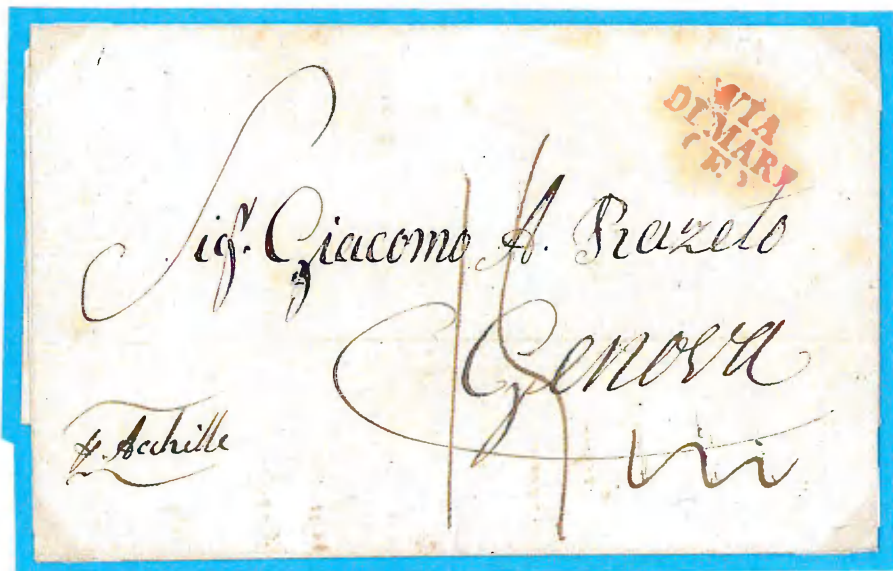 VIA
DI MARE
(E.)
Sig. Giacomo A. Razeto
Genova
p. Achille
15